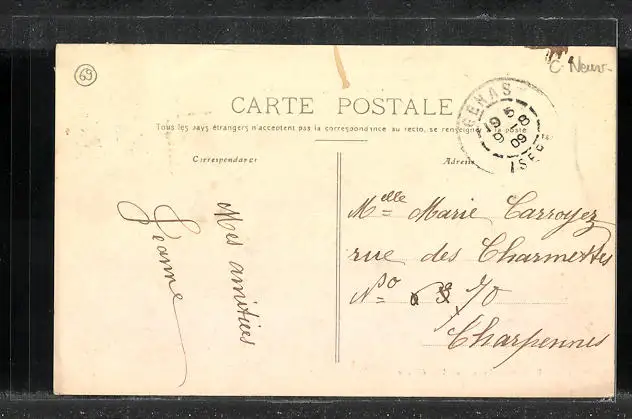 69
C. Neuv.
CARTE POSTALE
Tous les pays étrangers n'acceptent pas la correspondance au recto, se renseigner à la poste
Correspondance
Adresse
GENAS
5 - 8
09
ISÈRE
Mes amitiés
Jeanne
Melle Marie Carroyez
rue des Charmettes
No 70
Charpennes